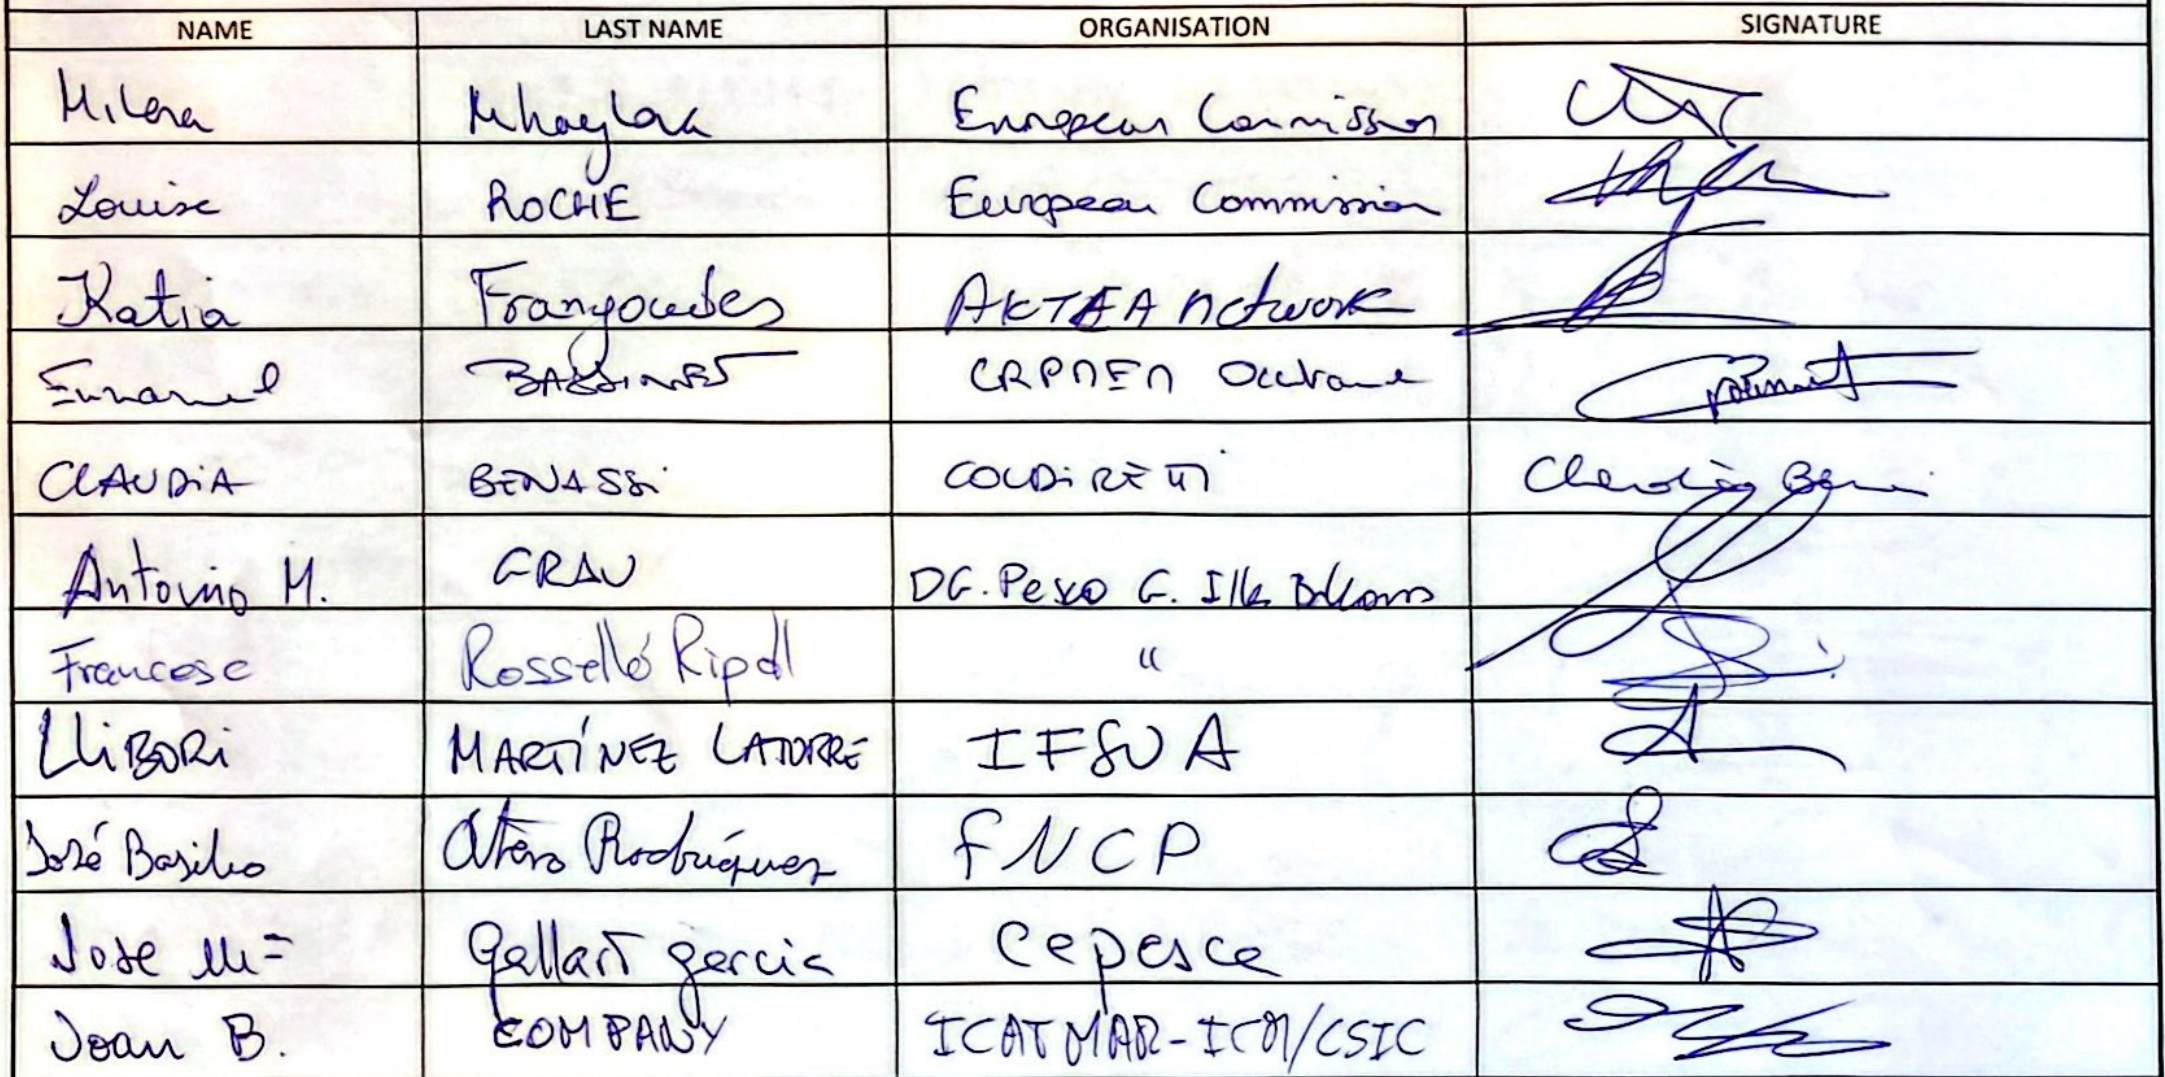 NAME LAST NAME ORGANISATION SIGNATURE
Milena Mihaylova European Commission
Louise ROCHE European Commission
Katia Frangoudes AKTEA network
Emmanuel CRPMEM Occitanie
CLAUDIA BENASSI COLDIRETTI Claudia
Antonio M. GRAU DG. Pesca G. Illes Balears
Francesc Rosselló Ripoll "
LLIBORI MARTÍNEZ LATORRE IFSUA
José Basilio Otero Rodríguez FNCP
Jose Mª Gallart garcia Cepesca
Joan B. COMPANY ICATMAR-ICM/CSIC